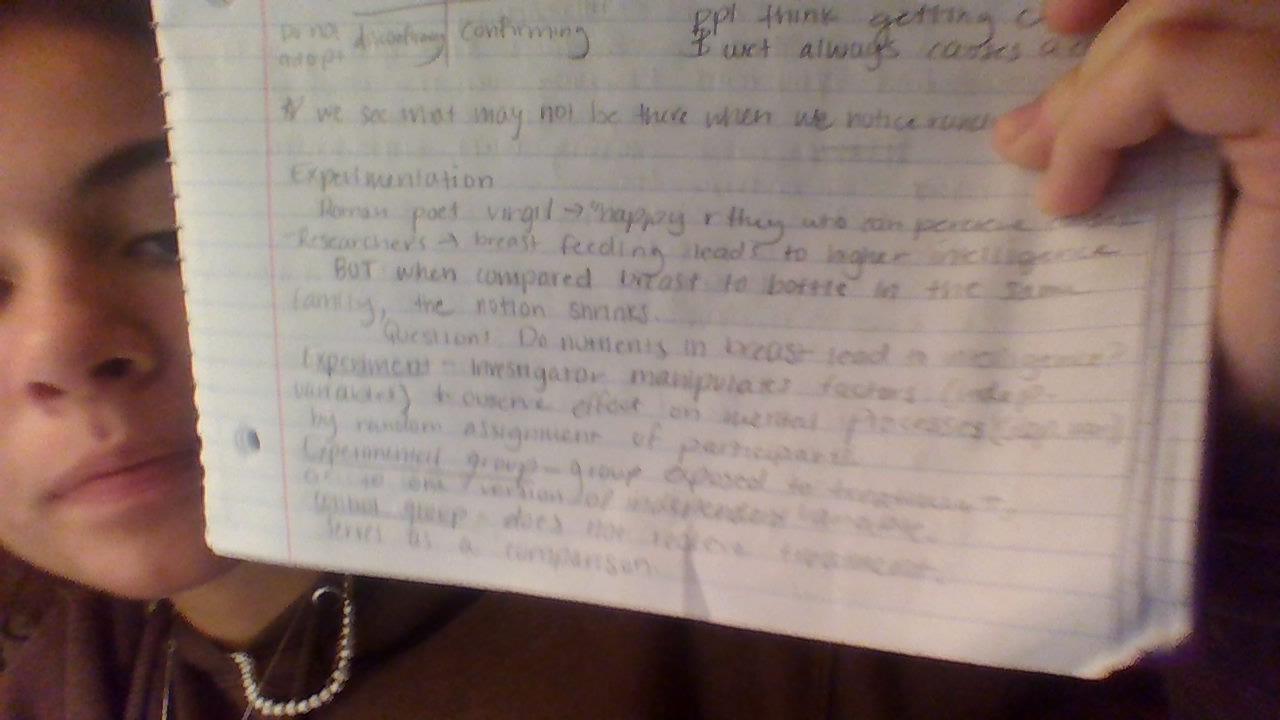 ppl think getting
Do not disconfirming confirming I wet always causes a
adopt
* we see what may not be there when we notice
Experimentation
Roman poet virgil → "happy r they who can perceive
- Researchers → breast feeding leads to higher intelligence
BUT when compared breast to bottle in the same
family, the notion shrinks.
Question: Do nutrients in breast lead to intelligence?
Experiment - Investigator manipulates factors (indep.
variables) to observe effect on mental processes
by random assignment of participants.
Experimental group - group exposed to treatment -
or to one version of independent variable.
control group - does not receive treatment.
serves as a comparison.